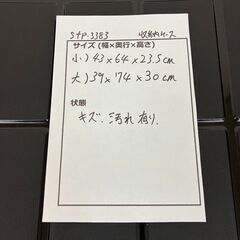 stp-3383 収納ケース
サイズ(幅×奥行×高さ)
小) 43×64×23.5cm
大) 39×74×30cm
状態
キズ、汚れ有り.